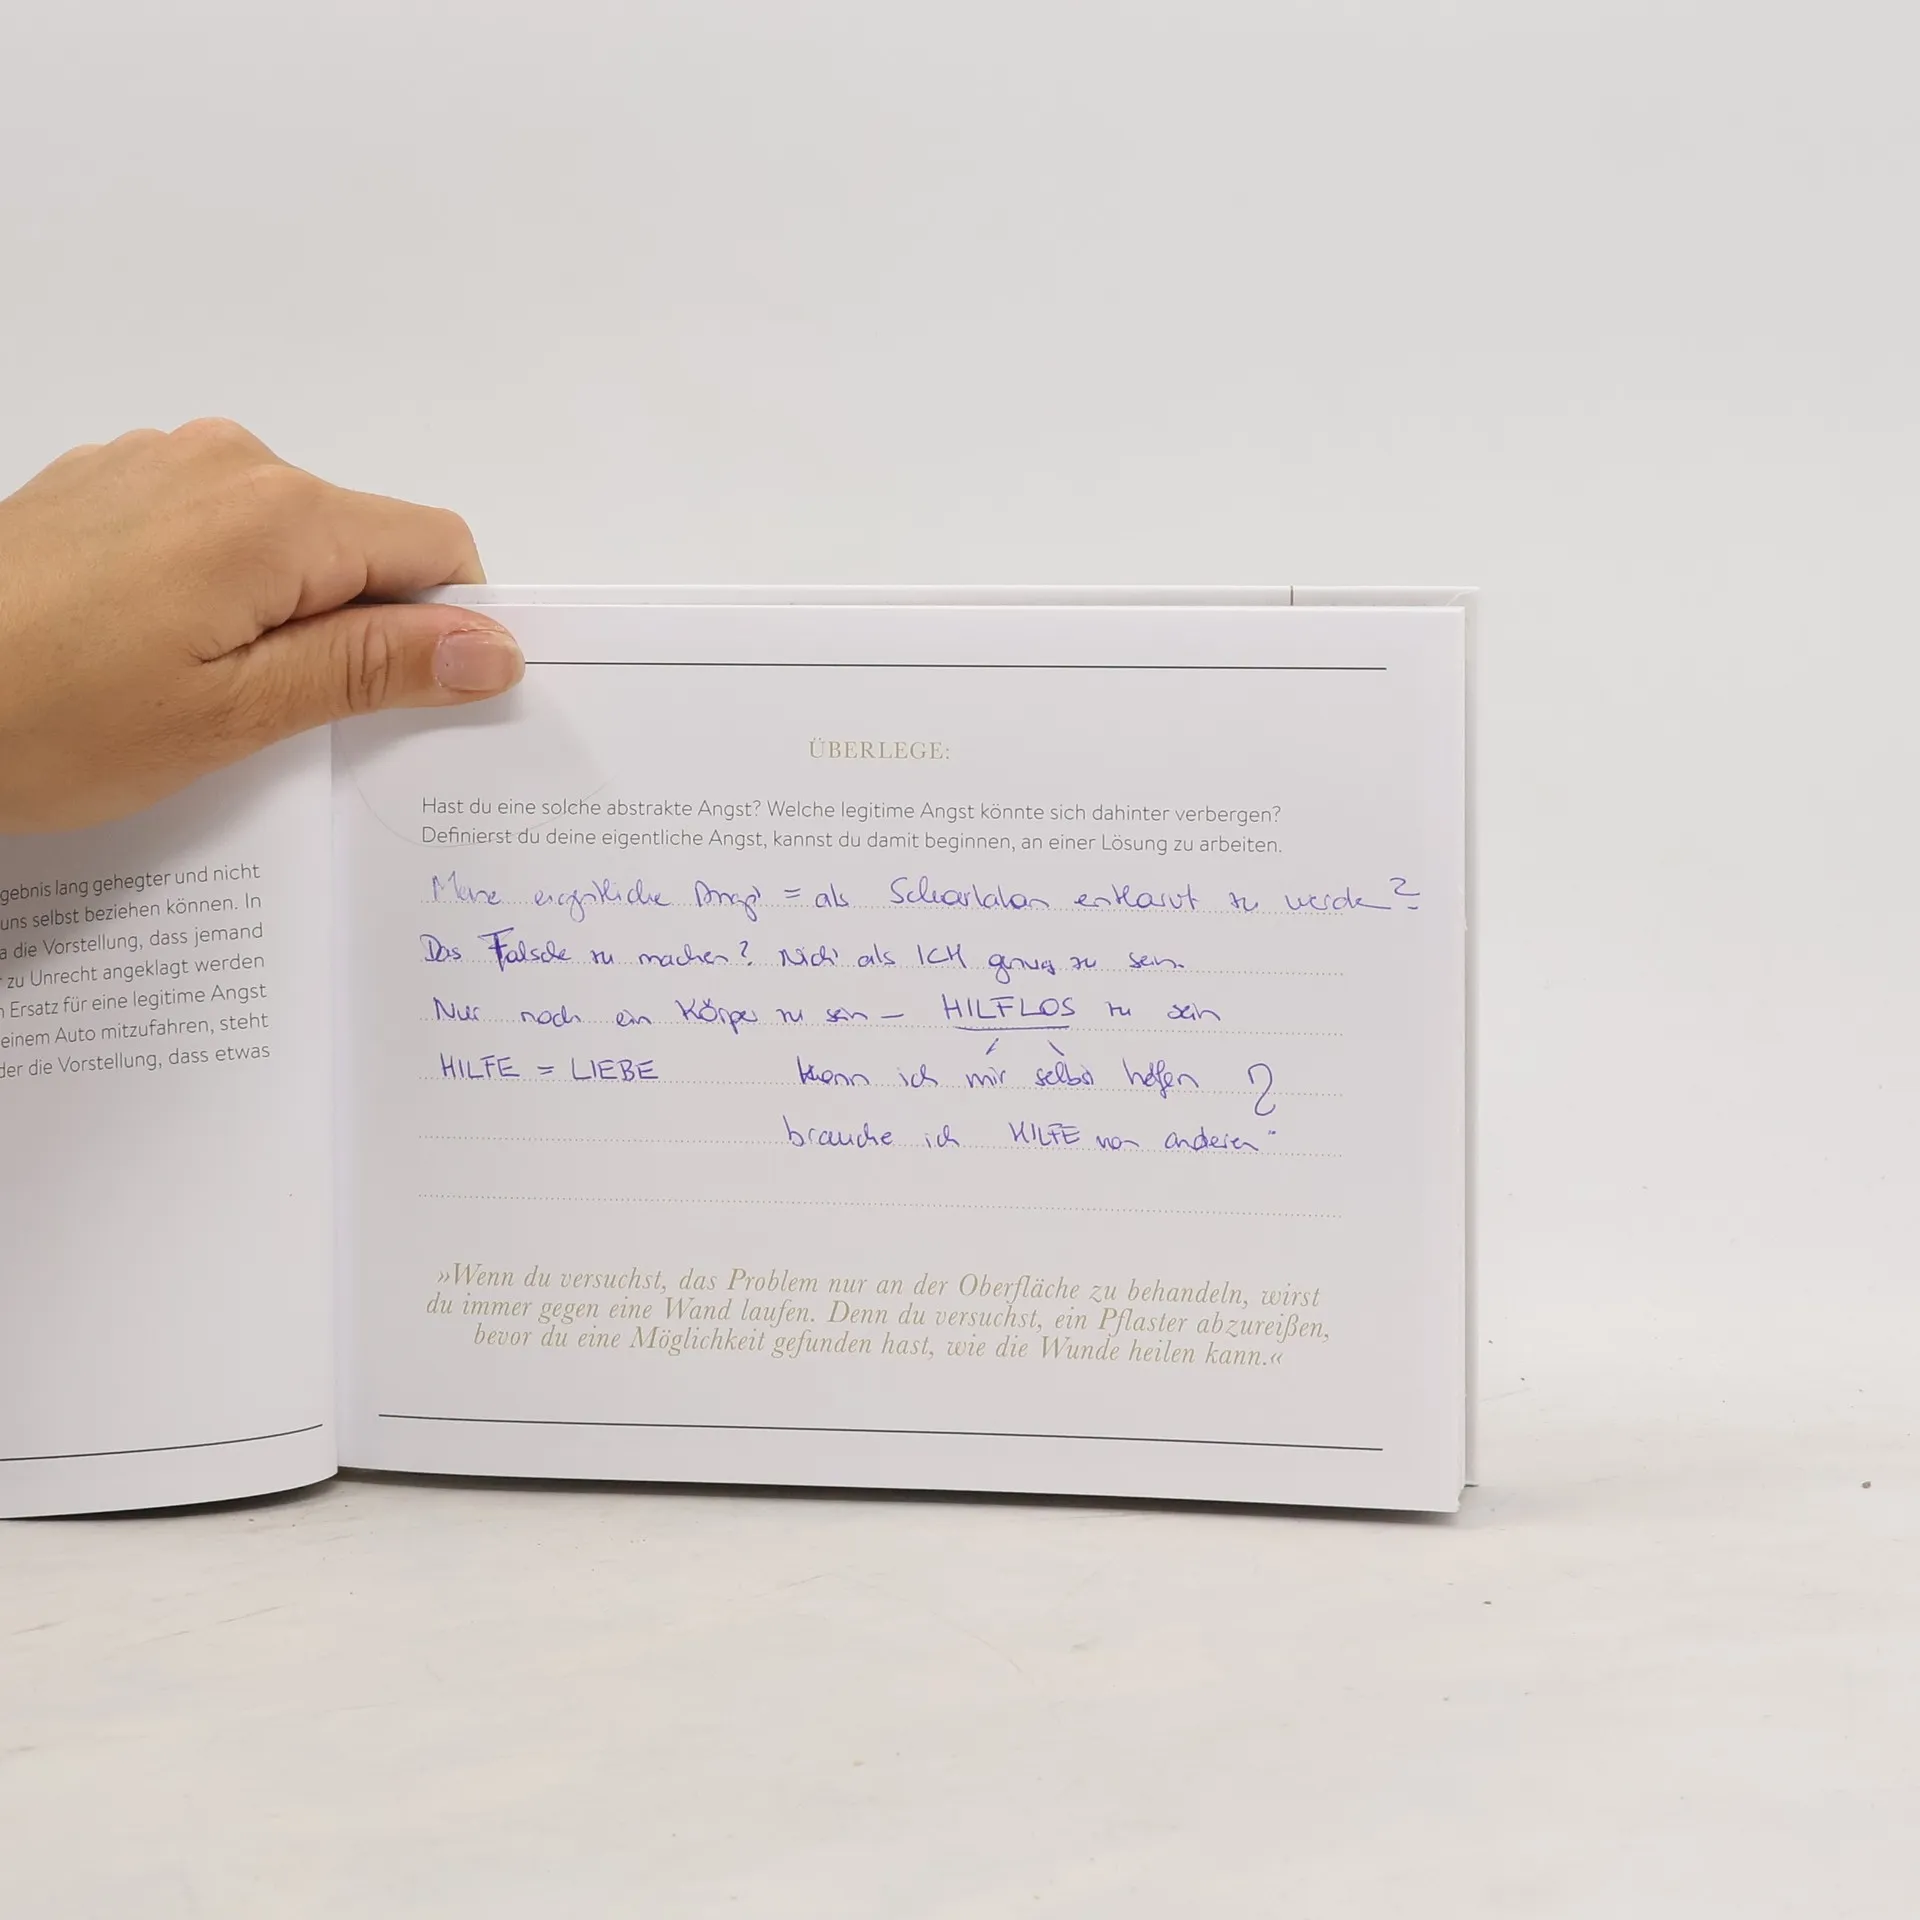 gebnis lang gehegter und nicht
uns selbst beziehen können. In
a die Vorstellung, dass jemand
zu Unrecht angeklagt werden
n Ersatz für eine legitime Angst
einem Auto mitzufahren, steht
der die Vorstellung, dass etwas
ÜBERLEGE:
Hast du eine solche abstrakte Angst? Welche legitime Angst könnte sich dahinter verbergen?
Definierst du deine eigentliche Angst, kannst du damit beginnen, an einer Lösung zu arbeiten.
Meine eigentliche Angst = als Scharlatan entlarvt zu werden?
Das Falsche zu machen? Nicht als ICH genug zu sein.
Nur noch ein Körper zu sein – HILFLOS zu sein
HILFE = LIEBE kann ich mir selbst helfen ?
brauche ich HILFE von anderen
»Wenn du versuchst, das Problem nur an der Oberfläche zu behandeln, wirst
du immer gegen eine Wand laufen. Denn du versuchst, ein Pflaster abzureißen,
bevor du eine Möglichkeit gefunden hast, wie die Wunde heilen kann.«